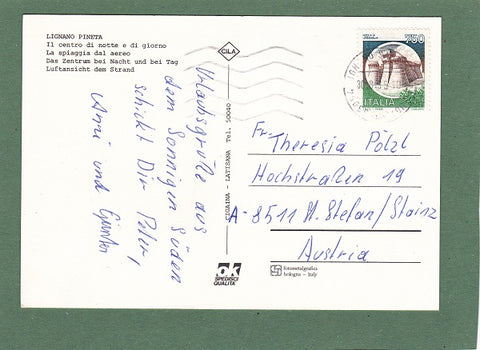 LIGNANO PINETA
Il centro di notte e di giorno
La spiaggia dal aereo
Das Zentrum bei Nacht und bei Tag
Luftansicht dem Strand
CILA
Urlaubsgrüße aus
dem Sonnigen Süden
schickt Dir Peter,
Anni und Günter
CIGAINA - LATISANA Tel. 50040
750
ITALIA
Fr. Theresia Pölzl
Hochstraßen 19
A-8511 St. Stefan/Stainz
Austria
ok
SPEDISCI
QUALITÀ
fotometalgrafica
bologna - italy